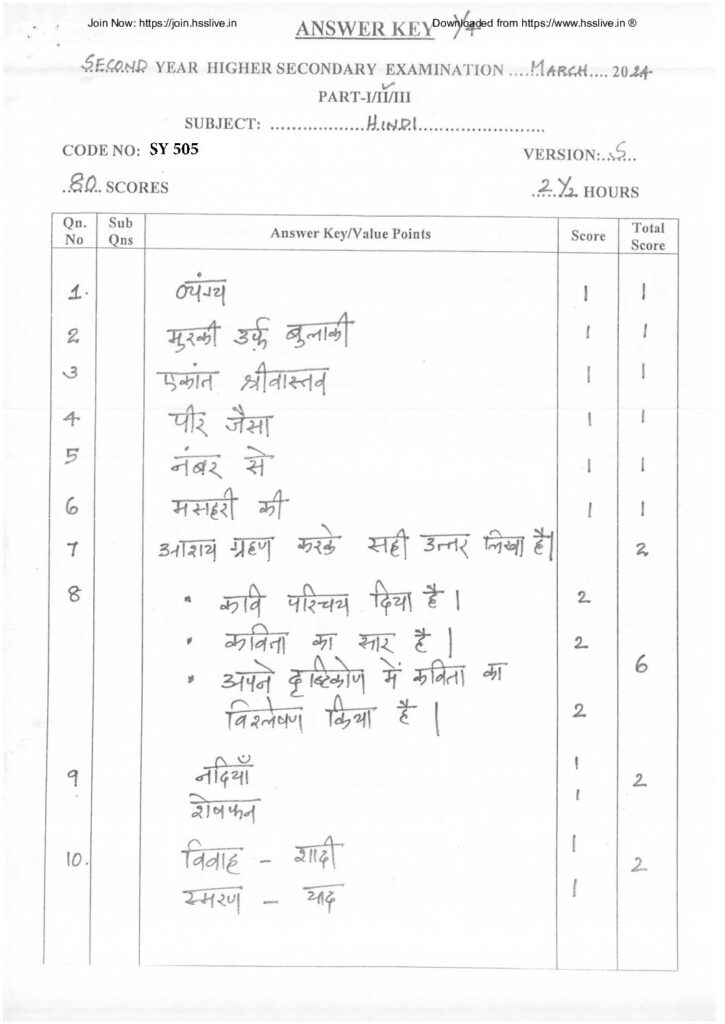 Join Now: https://join.hsslive.in Downloaded from https://www.hsslive.in ®
ANSWER KEY 1/4
SECOND YEAR HIGHER SECONDARY EXAMINATION ....MARCH.... 2024
PART-I/II/III
SUBJECT: ....................HINDI..........................
CODE NO: SY 505
VERSION:..S..
..80.. SCORES
..2 1/2 HOURS
Qn. No Sub Qns Answer Key/Value Points Score Total Score
1. व्यंग्य 1 1
2 मुरकी उर्फ़ बुलाकी 1 1
3 एकांत श्रीवास्तव 1 1
4 पीर जैसा 1 1
5 नंबर से 1 1
6 मसहरी की 1 1
7 आशय ग्रहण करके सही उत्तर लिखा है। 2
8 • कवि परिचय दिया है। 2
• कविता का सार है। 2
6
• अपने दृष्टिकोण में कविता का
विश्लेषण किया है। 2
9 नदियाँ 1 2
शेषफन 1
10. विवाह - शादी 1 2
स्मरण - याद 1